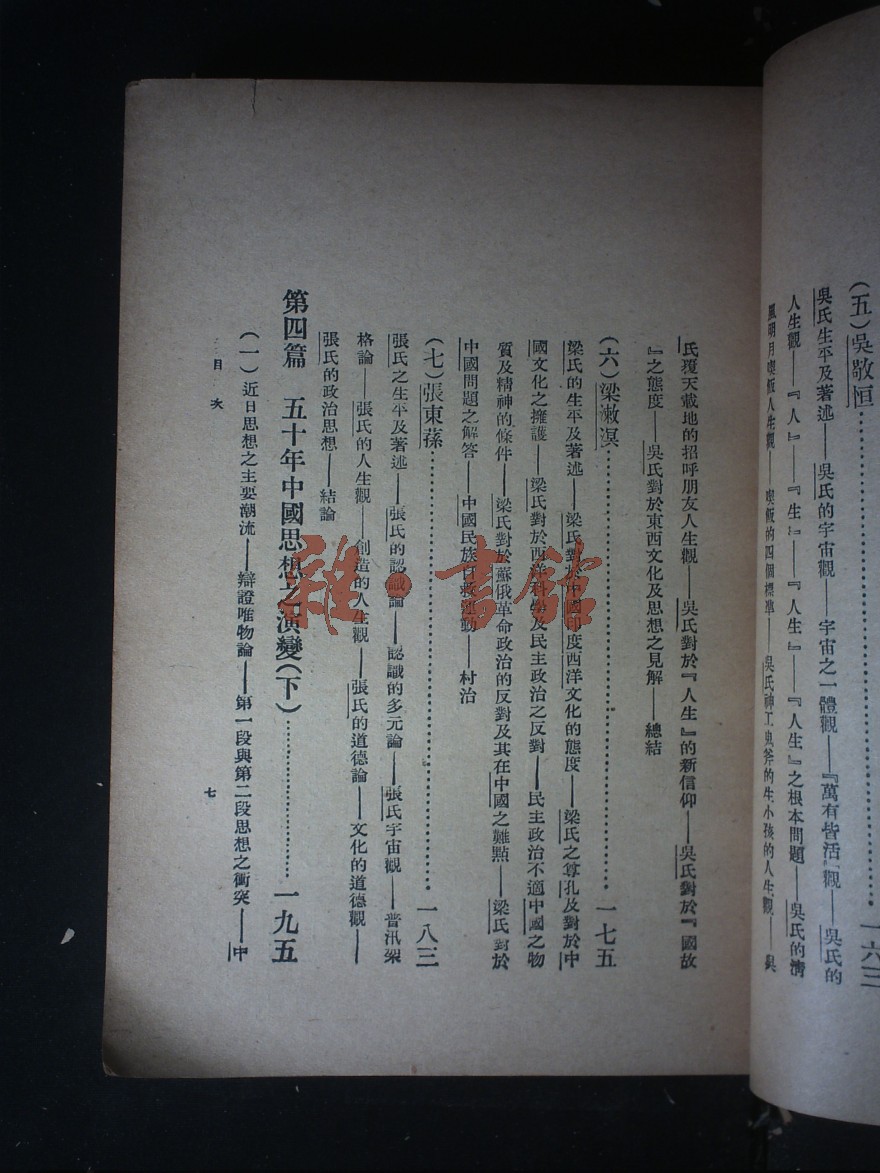 (五)吳敬恒……………………一六三
吳氏生平及著述——吳氏的宇宙觀——宇宙之一體觀——『萬有皆活』觀——吳氏的
人生觀——『人』——『生』——『人生』——『人生』之根本問題——吳氏的清
風明月喫飯人生觀——喫飯的四個標準——吳氏神工鬼斧的生小孩的人生觀——吳
氏覆天載地的招呼朋友人生觀——吳氏對於『人生』的新信仰——吳氏對於『國故
』之態度——吳氏對於東西文化及思想之見解——總結
(六)梁漱溟……………………一七五
梁氏的生平及著述——梁氏對於中國印度西洋文化的態度——梁氏之尊孔及對於中
國文化之擁護——梁氏對於西洋科學及民主政治之反對——民主政治不適中國之物
質及精神的條件——梁氏對於蘇俄革命政治的反對及其在中國之難點——梁氏對於
中國問題之解答——中國民族自救運動——村治
(七)張東蓀……………………一八三
張氏之生平及著述——張氏的認識論——認識的多元論——張氏宇宙觀——普汎架
格論——張氏的人生觀——創造的人生觀——張氏的道德論——文化的道德觀——
張氏的政治思想——結論
第四篇 五十年中國思想之演變(下)……………………一九五
(一)近日思想之主要潮流——辯證唯物論——第一段與第二段思想之衝突——中
目次
七
雜·書館